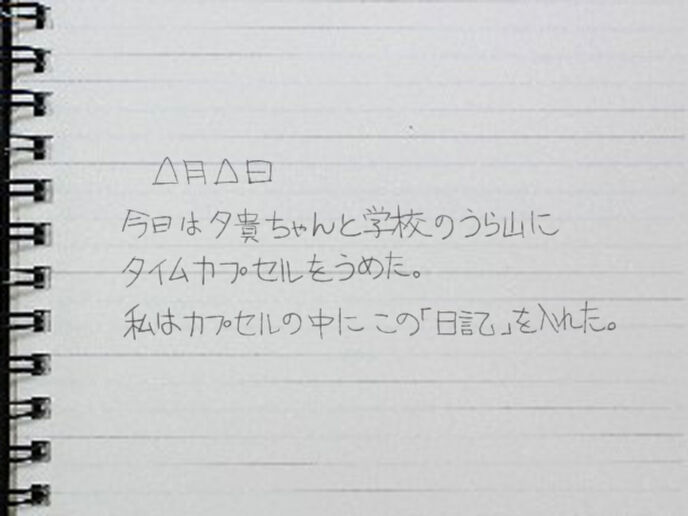 △月△日
今日は夕貴ちゃんと学校のうら山に
タイムカプセルをうめた。
私はカプセルの中にこの「日記」を入れた。